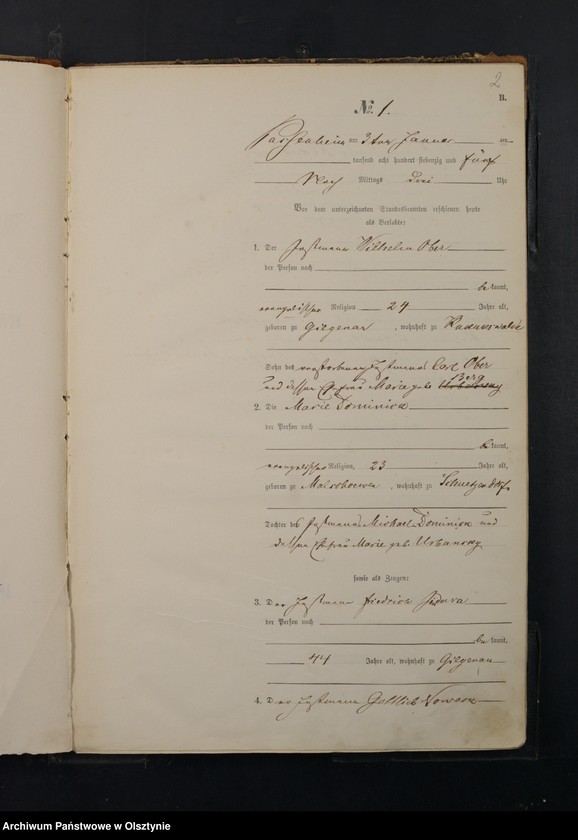 2
B.
No. 1.
Passenheim am 3ten Januar
tausend acht hundert siebenzig und fünf
Nach Mittags drei Uhr
Vor dem unterzeichneten Standesbeamten erschienen heute
als Verlobte:
1. Der Instmann Wilhelm Ober
der Person nach
be kannt,
evangelischer Religion 24 Jahre alt,
geboren zu Gilgenau, wohnhaft zu
Sohn des verstorbenen Instmanns Carl Ober
Berg
und dessen Ehefrau Marie geb. Urbansky
2. Die Marie Dominick
der Person nach
be kannt,
evangelischer Religion, 23 Jahre alt,
geboren zu, wohnhaft zu
Tochter des Instmanns Michael Dominick und
dessen Ehefrau Marie geb. Urbansky
sowie als Zeugen:
3. Der Instmann Friedrich
der Person nach
be kannt,
44 Jahre alt, wohnhaft zu Gilgenau
4. Der Instmann Gottlieb
Archiwum Państwowe w Olsztynie